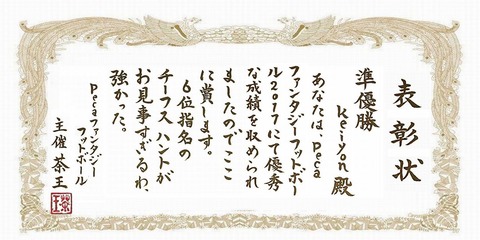 表彰状
準優勝
keiyon 殿
あなたは、peca
ファンタジーフットボー
ル2017にて優秀
な成績を収められ
ましたのでここ
に賞します。
6位指名の
チーフス ハントが
お見事すぎるわ、
強かった。
pecaファンタジー
フットボール
主催 茶王